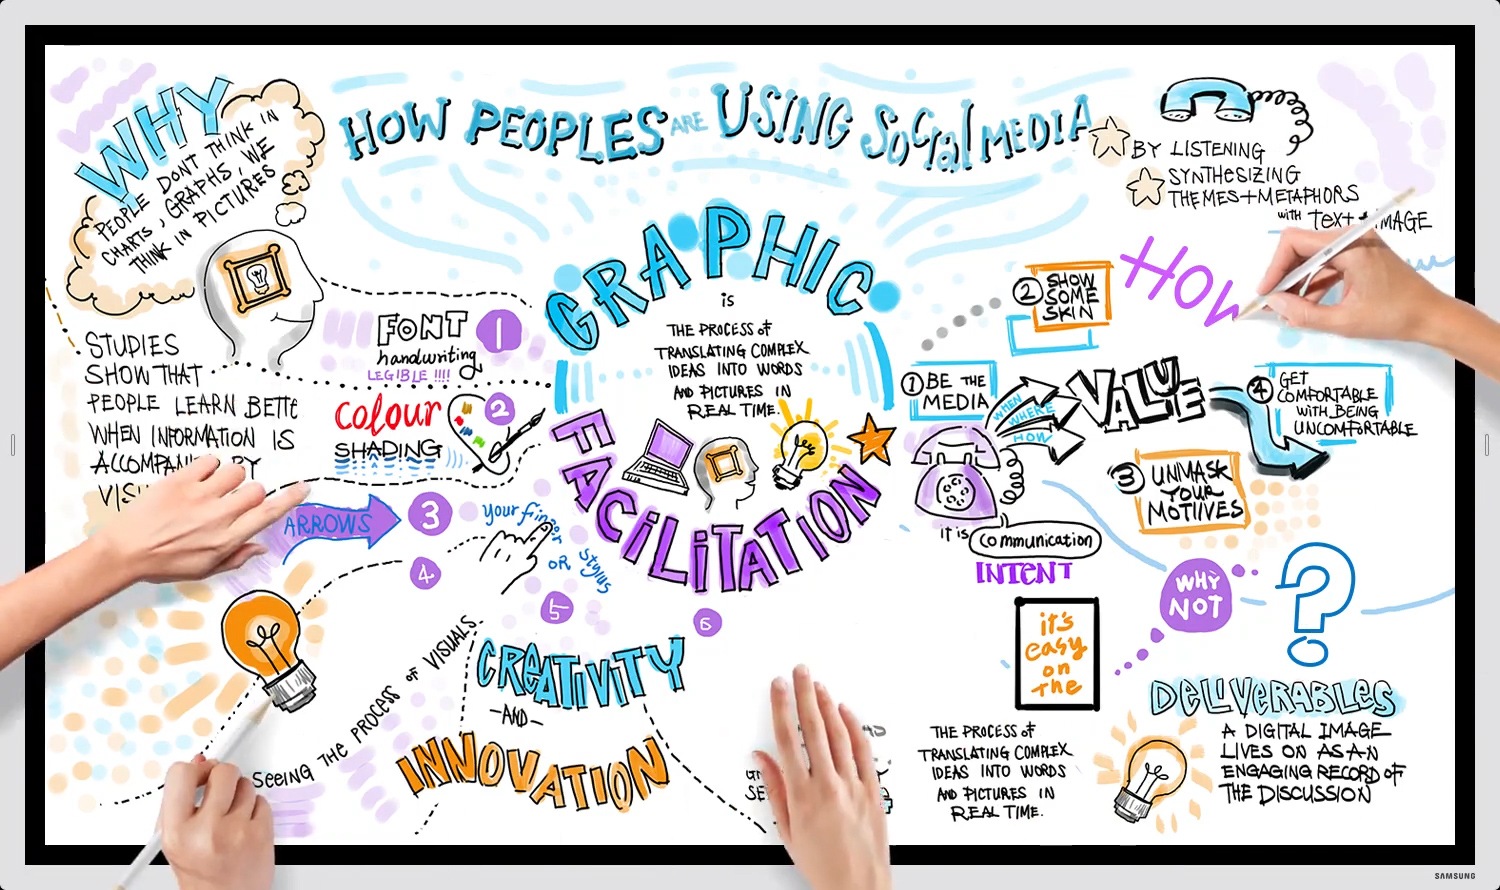 HOW PEOPLES ARE USING SOCIAL MEDIA
WHY
PEOPLE DON'T THINK IN
CHARTS, GRAPHS, WE
THINK IN PICTURES
STUDIES
SHOW THAT
PEOPLE LEARN BETTE
WHEN INFORMATION IS
BY
FONT 1
handwriting
LEGIBLE !!!!
colour 2
SHADING
ARROWS 3
4
your finger
OR
stylus
5
6
SEEING THE PROCESS OF VISUALS
CREATIVITY
-AND-
INNOVATION
GRAPHIC
is
THE PROCESS of
TRANSLATING COMPLEX
IDEAS INTO WORDS
AND PICTURES IN
REAL TIME.
FACILITATION
BY LISTENING
SYNTHESIZING
THEMES+METAPHORS
with TEXT + IMAGE
HOW
2 SHOW
SOME
SKIN
1 BE THE
MEDIA
WHEN
WHERE
HOW
VALUE
4 GET
COMFORTABLE
WITH BEING
UNCOMFORTABLE
3 UNMASK
YOUR
MOTIIVES
it is communication
INTENT
WHY
NOT
?
it's
easy
on
The
THE PROCESS of
TRANSLATING COMPLEX
IDEAS INTO WORDS
AND PICTURES IN
REAL TIME.
DELIVERABLES
A DIGITAL IMAGE
LIVES ON AS AN
ENGAGING RECORD OF
THE DISCUSSION
SAMSUNG